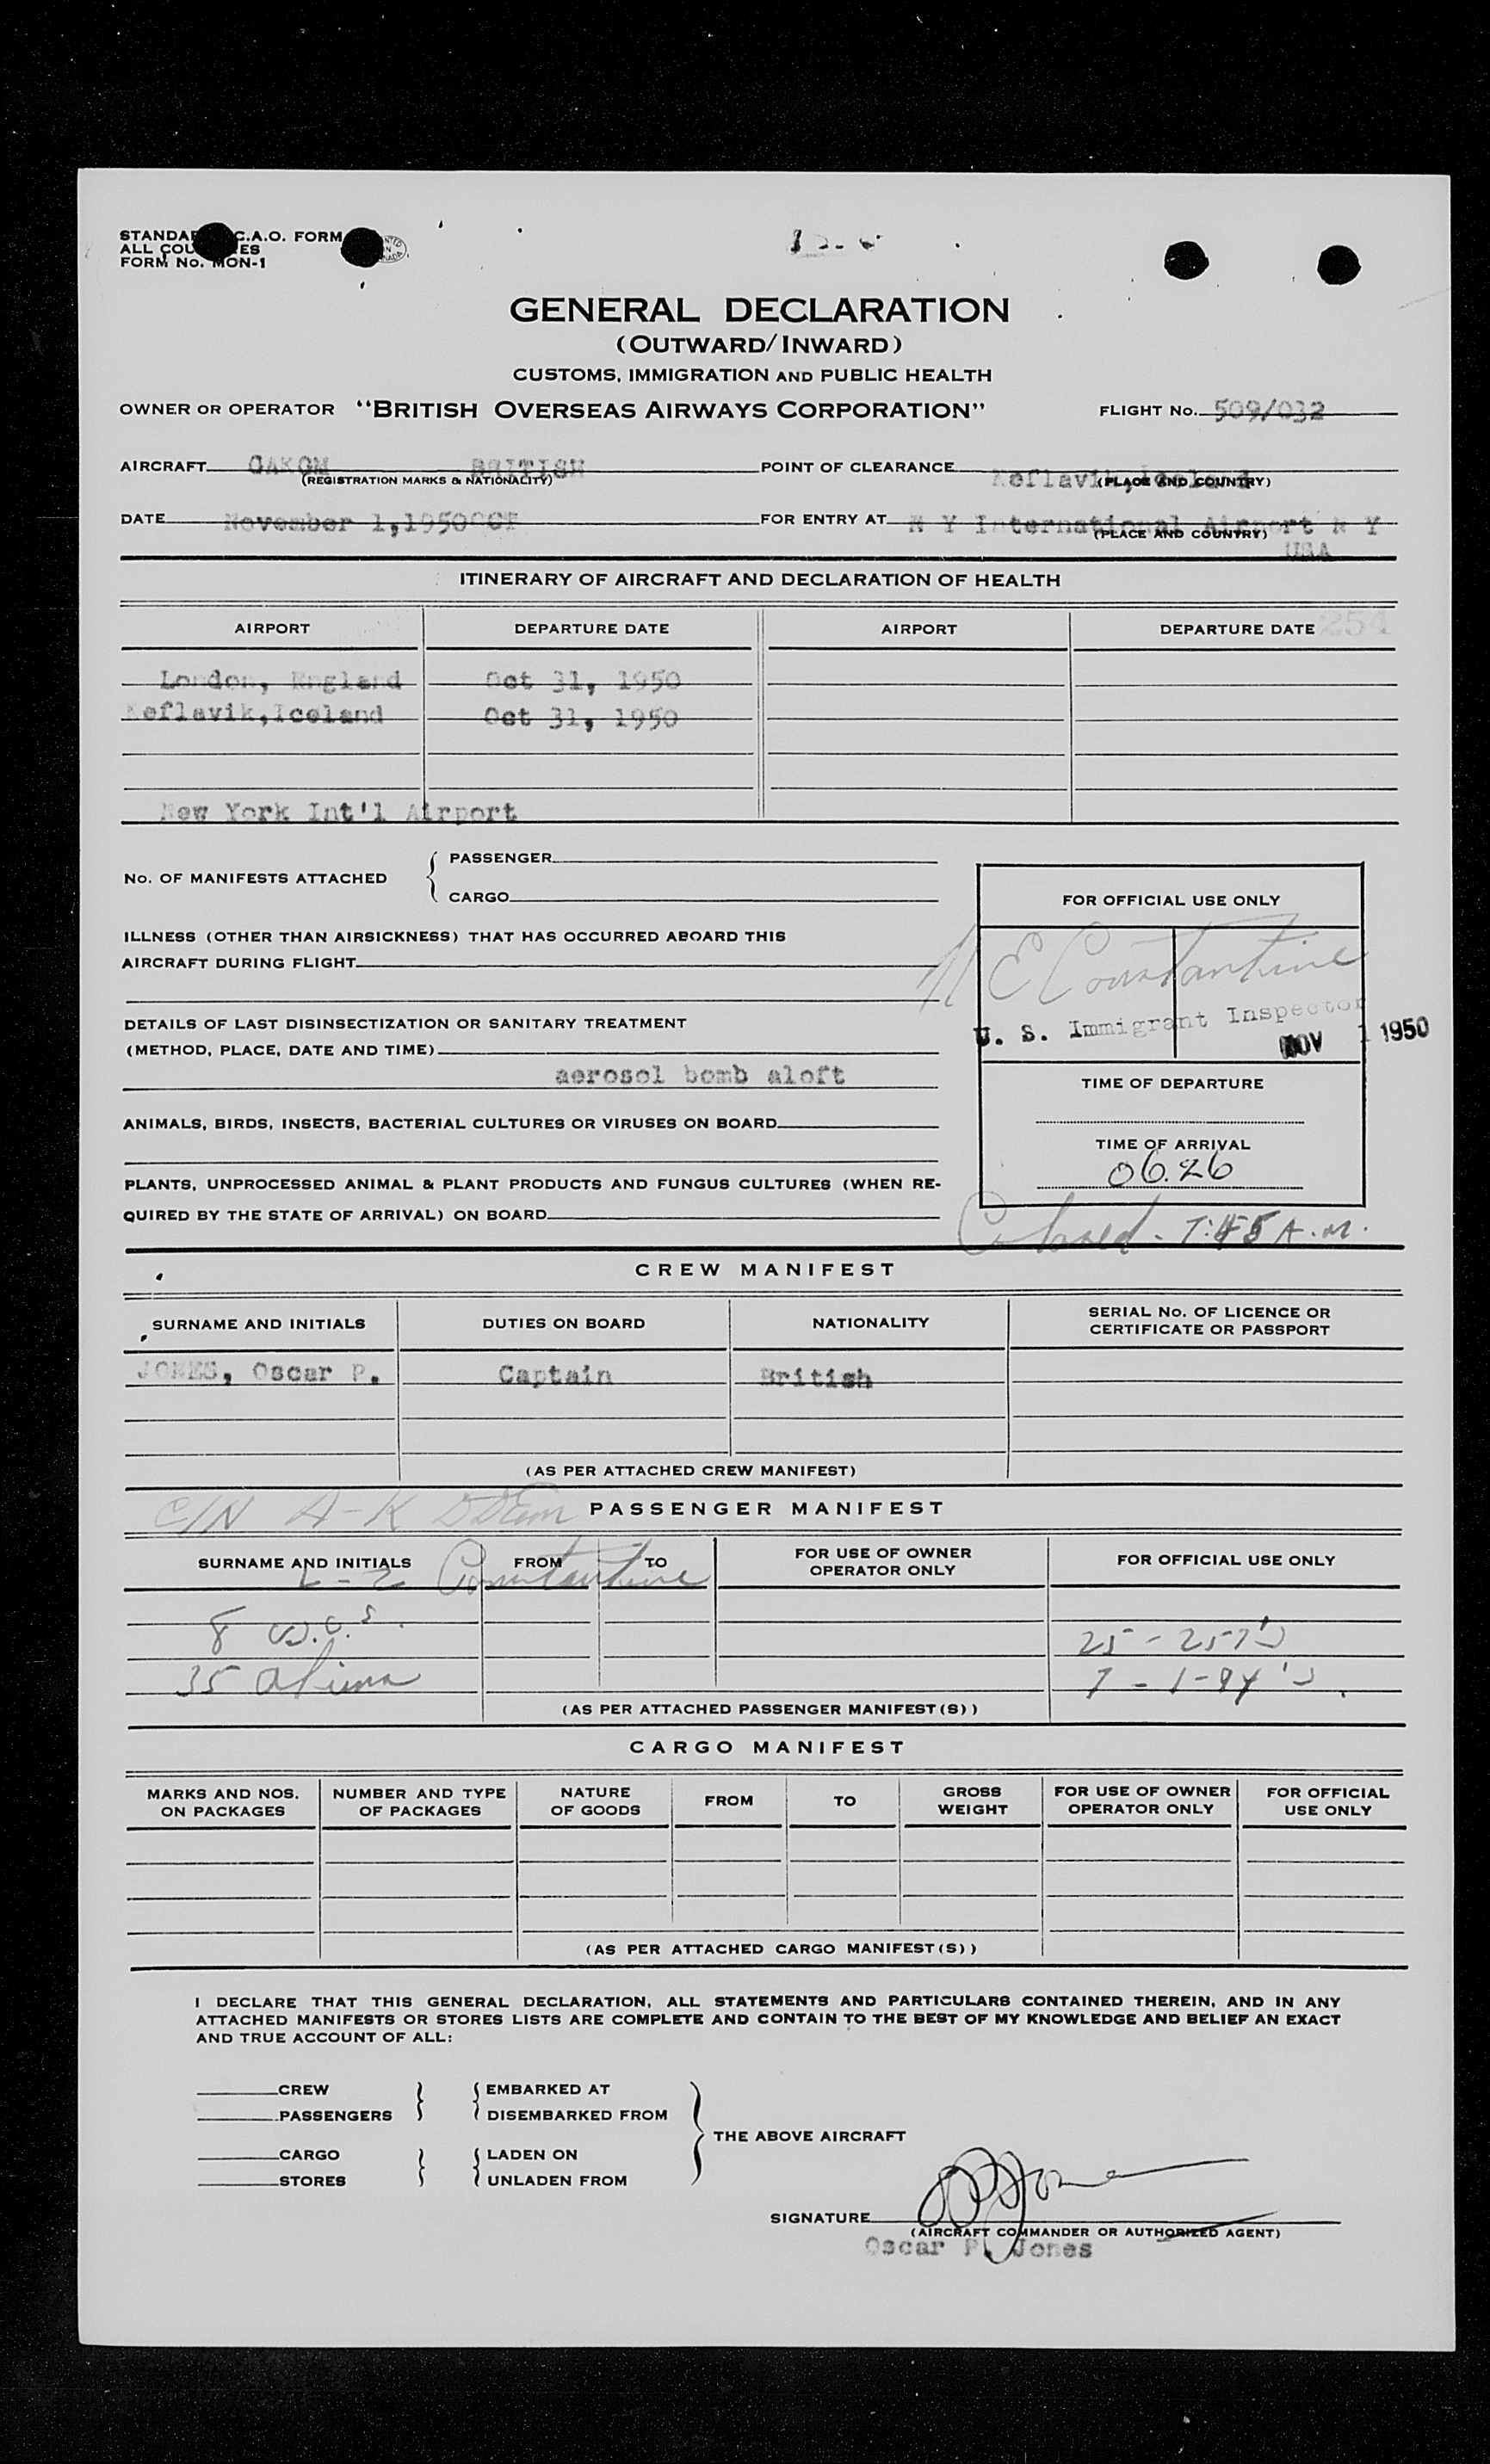 STANDA C.A.O. FORM
ALL COU ES
FORM No. MON-1
GENERAL DECLARATION
(OUTWARD/INWARD)
CUSTOMS, IMMIGRATION AND PUBLIC HEALTH
OWNER OR OPERATOR "BRITISH OVERSEAS AIRWAYS CORPORATION" FLIGHT No. 509/032
AIRCRAFT GAKGM BRITISH POINT OF CLEARANCE Keflavik, Iceland
(REGISTRATION MARKS & NATIONALITY) (PLACE AND COUNTRY)
DATE November 1,1950 FOR ENTRY AT N Y International Airport N Y
(PLACE AND COUNTRY) USA
ITINERARY OF AIRCRAFT AND DECLARATION OF HEALTH
AIRPORT DEPARTURE DATE AIRPORT DEPARTURE DATE 254
London, England Oct 31, 1950
Keflavik,Iceland Oct 31, 1950
New York Int'l Airport
No. OF MANIFESTS ATTACHED
PASSENGER
CARGO
FOR OFFICIAL USE ONLY
ILLNESS (OTHER THAN AIRSICKNESS) THAT HAS OCCURRED ABOARD THIS
AIRCRAFT DURING FLIGHT
N E Constantine
U. S. Immigrant Inspector
NOV 1 1950
DETAILS OF LAST DISINSECTIZATION OR SANITARY TREATMENT
(METHOD, PLACE, DATE AND TIME)
aerosol bomb aloft
TIME OF DEPARTURE
ANIMALS, BIRDS, INSECTS, BACTERIAL CULTURES OR VIRUSES ON BOARD
TIME OF ARRIVAL
06.26
PLANTS, UNPROCESSED ANIMAL & PLANT PRODUCTS AND FUNGUS CULTURES (WHEN RE-
QUIRED BY THE STATE OF ARRIVAL) ON BOARD
7:45 A.M.
CREW MANIFEST
SURNAME AND INITIALS DUTIES ON BOARD NATIONALITY SERIAL No. OF LICENCE OR
CERTIFICATE OR PASSPORT
JONES, Oscar P. Captain British
(AS PER ATTACHED CREW MANIFEST)
C/N A-K PASSENGER MANIFEST
SURNAME AND INITIALS FROM TO FOR USE OF OWNER
OPERATOR ONLY FOR OFFICIAL USE ONLY
L-Z Constantine
8 U.C.S.
35 Aliens
25 - 257's
7 - I-94's.
(AS PER ATTACHED PASSENGER MANIFEST(S))
CARGO MANIFEST
MARKS AND NOS.
ON PACKAGES
NUMBER AND TYPE
OF PACKAGES
NATURE
OF GOODS
FROM
TO
GROSS
WEIGHT
FOR USE OF OWNER
OPERATOR ONLY
FOR OFFICIAL
USE ONLY
(AS PER ATTACHED CARGO MANIFEST(S))
I DECLARE THAT THIS GENERAL DECLARATION, ALL STATEMENTS AND PARTICULARS CONTAINED THEREIN, AND IN ANY
ATTACHED MANIFESTS OR STORES LISTS ARE COMPLETE AND CONTAIN TO THE BEST OF MY KNOWLEDGE AND BELIEF AN EXACT
AND TRUE ACCOUNT OF ALL:
CREW EMBARKED AT
PASSENGERS DISEMBARKED FROM
THE ABOVE AIRCRAFT
CARGO LADEN ON
STORES UNLADEN FROM
SIGNATURE O P Jones
(AIRCRAFT COMMANDER OR AUTHORIZED AGENT)
Oscar P. Jones